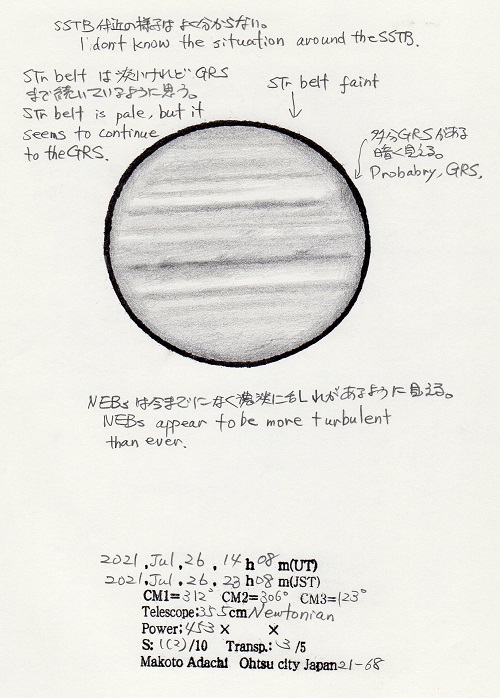 SSTB付近の様子はよく分からない。
I don't know the situation around the SSTB.
STr belt は淡いけれど GRS
まで続いているように思う。
STr belt is pale, but it
seems to continue
to the GRS.
STr belt faint
多分GRSがある
暗く見える。
Probabry, GRS.
NEBs は今までになく濃淡に乱れがあるように見える。
NEBs appear to be more turbulent
than ever.
2021.Jul.26.14h08m(UT)
2021.Jul.26.23h08m(JST)
CM1=312° CM2=306° CM3=123°
Telescope:355cm Newtonian
Power:453× ×
S:1(2)/10 Transp.:3/5
Makoto Adachi Ohtsu city Japan 21-68